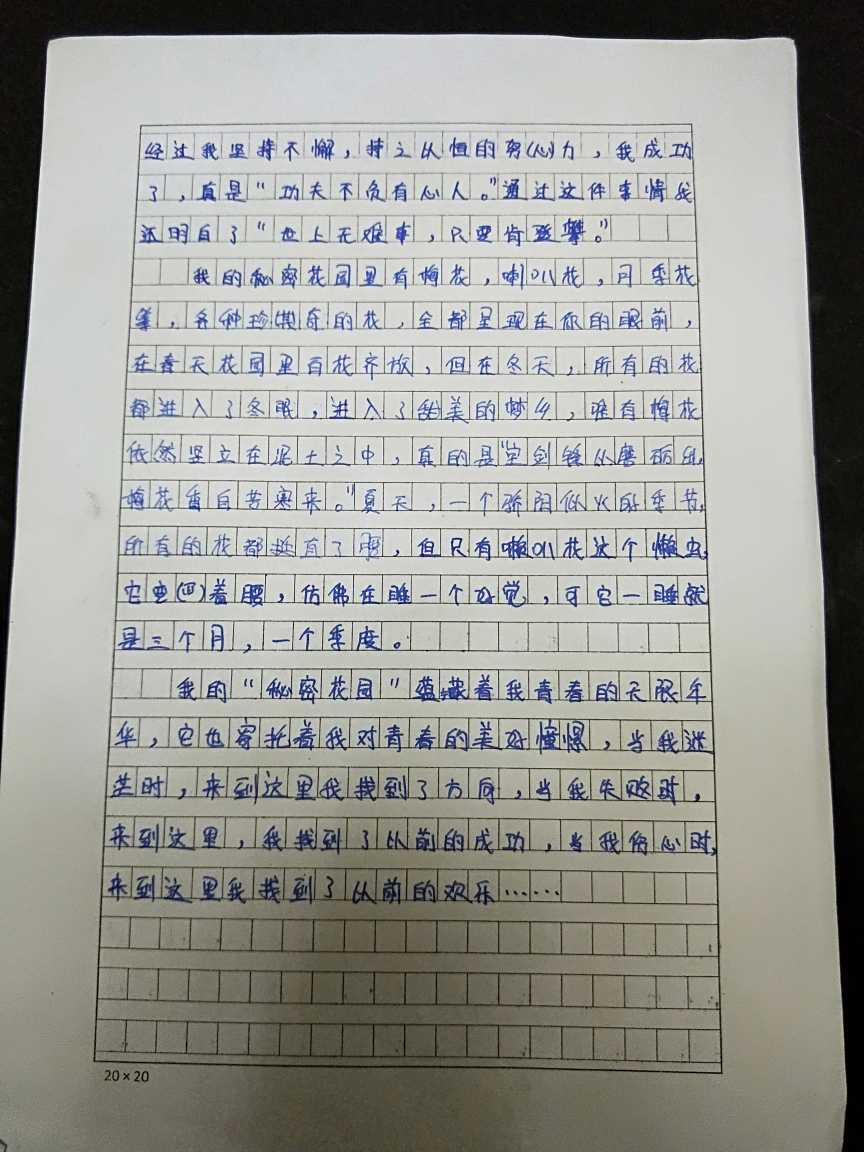 经过我坚持不懈，持之以恒的努(心)力，我成功
了，真是“功夫不负有心人。”通过这件事情我
还明白了“世上无难事，只要肯登攀。”
我的秘密花园里有梅花，喇叭花，月季花
等，各种珍(棋)奇的花，全都呈现在你的眼前，
在春天花园里百花齐放，但在冬天，所有的花
都进入了冬眠，进入了甜美的梦乡，唯有梅花
依然坚立在泥土之中，真的是“宝剑锋从磨砺出，
梅花香自苦寒来。”夏天，一个骄阳似火的季节，
所有的花都挺直了腰，但只有喇叭花这个懒虫，
它(四)着腰，仿佛在睡一个好觉，可它一睡就
是三个月，一个季度。
我的“秘密花园”蕴藏着我青春的无限年
华，它也寄托着我对青春的美好憧憬，当我迷
茫时，来到这里我找到了方向，当我失败时，
来到这里，我找到了以前的成功，当我伤心时，
来到这里我找到了以前的欢乐……
20×20